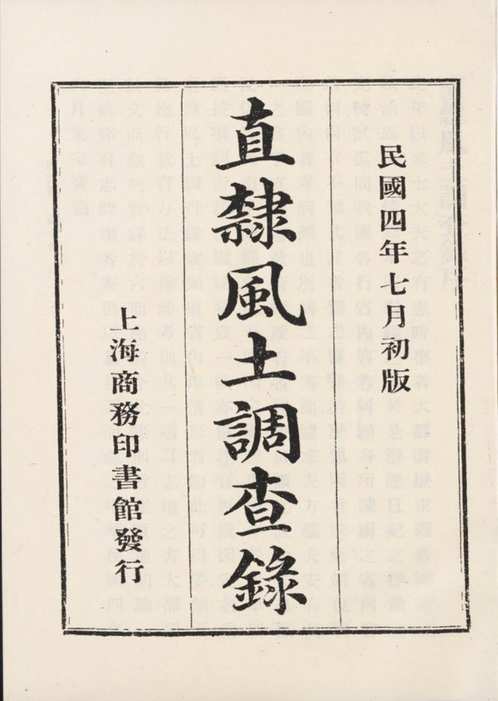 民國四年七月初版
直隸風土調查錄
上海商務印書館發行